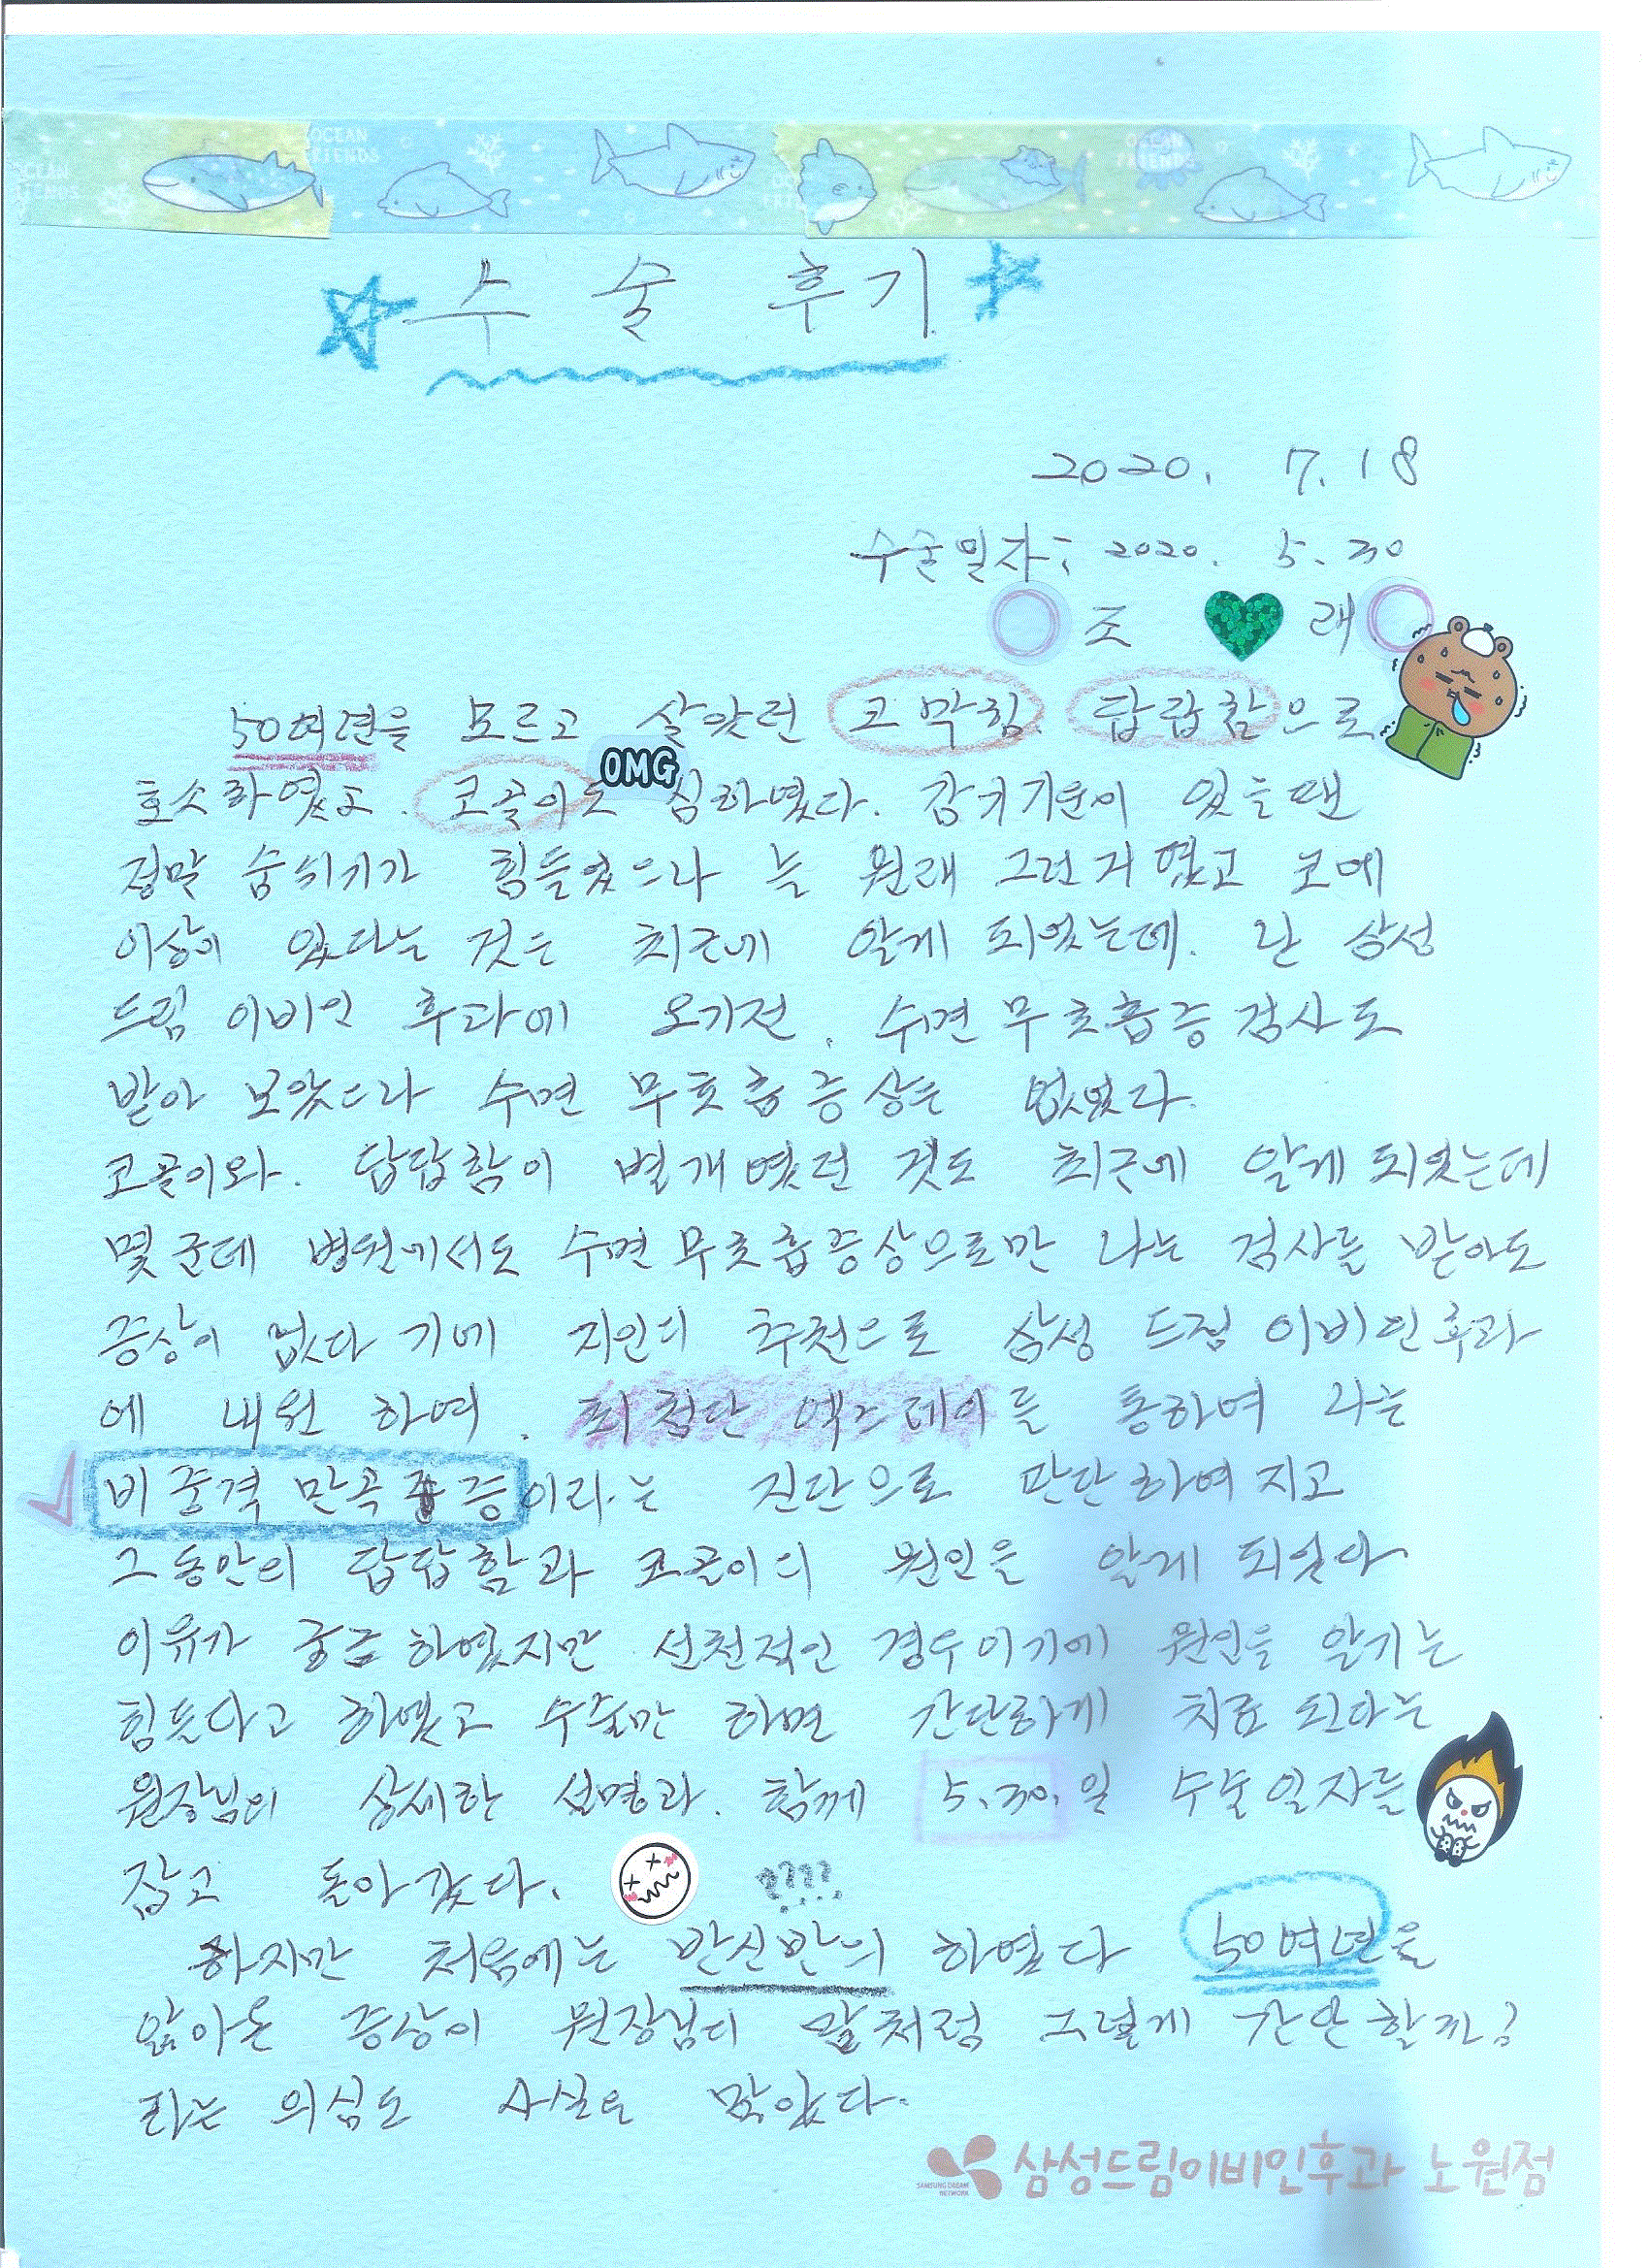 OCEAN FRIENDS
OCEAN FRIENDS
OCEAN FRIENDS
수 술 후기
2020. 7.18
수술일자; 2020. 5.30
조 래
50여년을 모르고 살았던 코막힘. 답답함으로
호소하였고. 코골이도 심하였다. 감기기운이 있을땐
OMG
정말 숨쉬기가 힘들었으나 늘 원래 그런거였고 코에
이상이 있다는 것은 최근에 알게 되었는데. 난 삼성
드림 이비인 후과에 오기전. 수면무호흡증검사도
받아 보았으나 수면 무호흡증상은 없었다.
코골이와. 답답함이 별개였던 것도 최근에 알게되었는데
몇군데 병원에서도 수면무호흡증상으로만 나는 검사를 받아도
증상이 없다기에 지인의 추천으로 삼성 드림 이비인후과
에 내원 하여. 최첨단 엑스레이를 통하여 나는
비중격 만곡 증이라는 진단으로 판단하여지고
그동안의 답답함과 코골이의 원인을 알게 되었다
이유가 궁금하였지만 선천적인 경우이기에 원인을 알기는
힘든다고 하였고 수술만 하면 간단하게 치료 된다는
원장님의 상세한 설명과. 함께 5.30.일 수술일자를
잡고 돌아갔다. ????
하지만 처음에는 반신반의 하였다 50여년을
앓아온 증상이 원장님의 말처럼 그렇게 간단할까?
라는 의심도 사실은 많았다.
SAMSUNG DREAM NETWORK 삼성드림이비인후과 노원점